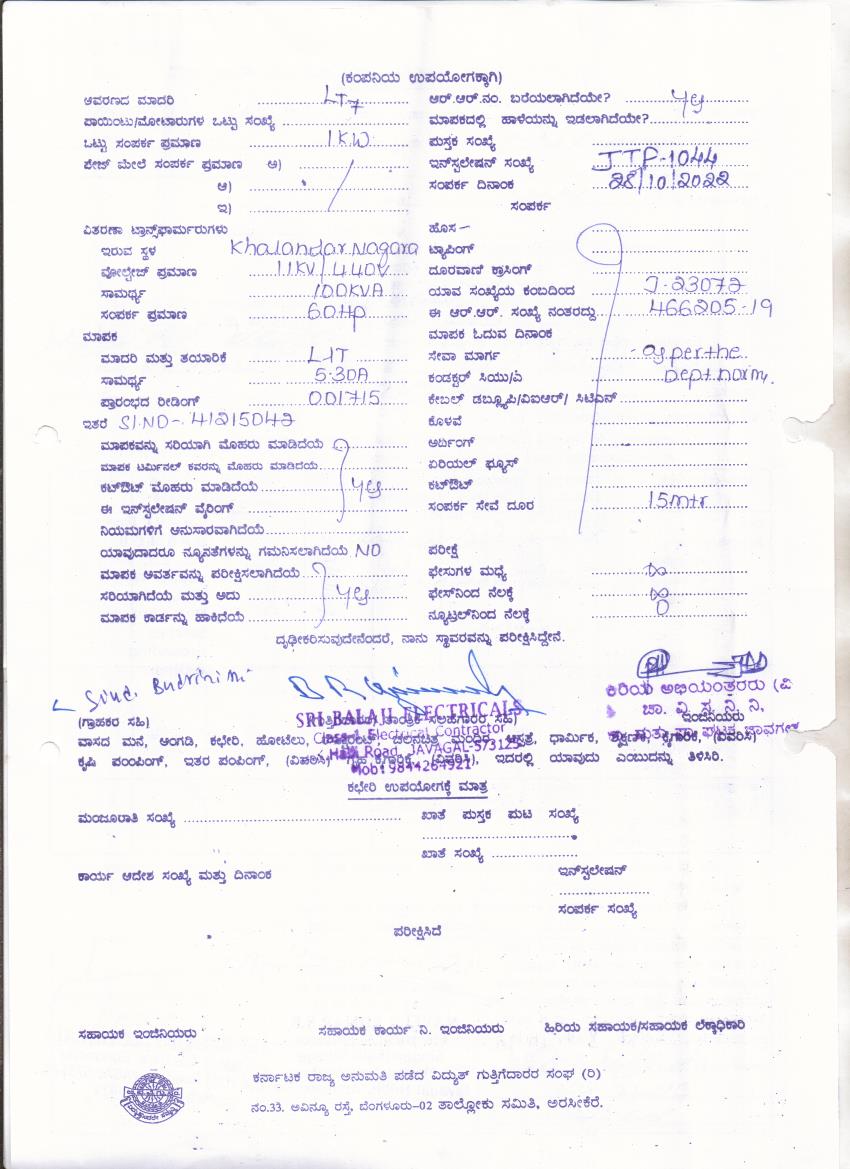 (ಕಂಪನಿಯ ಉಪಯೋಗಕ್ಕಾಗಿ)
ಆವರಣದ ಮಾದರಿ LT7
ಪಾಯಿಂಟು/ಮೋಟಾರುಗಳ ಒಟ್ಟು ಸಂಖ್ಯೆ
ಒಟ್ಟು ಸಂಪರ್ಕ ಪ್ರಮಾಣ 1KW
ಪೇಜ್ ಮೇಲೆ ಸಂಪರ್ಕ ಪ್ರಮಾಣ ಅ)
ಆ)
ಇ)
ವಿತರಣಾ ಟ್ರಾನ್ಸ್‌ಫಾರ್ಮರುಗಳು
ಇರುವ ಸ್ಥಳ Khalandar Nagara
ವೋಲ್ಟೇಜ್ ಪ್ರಮಾಣ 11KV/440V
ಸಾಮರ್ಥ್ಯ 100KVA
ಸಂಪರ್ಕ ಪ್ರಮಾಣ 60HP
ಮಾಪಕ
ಮಾದರಿ ಮತ್ತು ತಯಾರಿಕೆ L1T
ಸಾಮರ್ಥ್ಯ 5-30A
ಪ್ರಾರಂಭದ ರೀಡಿಂಗ್ 001715
ಇತರೆ Sl.NO- 41215042
ಮಾಪಕವನ್ನು ಸರಿಯಾಗಿ ಮೊಹರು ಮಾಡಿದೆಯೆ
ಮಾಪಕ ಟರ್ಮಿನಲ್ ಕವರನ್ನು ಮೊಹರು ಮಾಡಿದೆಯೆ
ಕಟ್‌ಔಟ್ ಮೊಹರು ಮಾಡಿದೆಯೆ yes
ಈ ಇನ್‌ಸ್ಟಲೇಷನ್ ವೈರಿಂಗ್
ನಿಯಮಗಳಿಗೆ ಅನುಸಾರವಾಗಿದೆಯೆ
ಯಾವುದಾದರೂ ನ್ಯೂನತೆಗಳನ್ನು ಗಮನಿಸಲಾಗಿದೆಯೆ NO
ಮಾಪಕ ಅವರ್ತವನ್ನು ಪರೀಕ್ಷಿಸಲಾಗಿದೆಯೆ
ಸರಿಯಾಗಿದೆಯೆ ಮತ್ತು ಅದು yes
ಮಾಪಕ ಕಾರ್ಡನ್ನು ಹಾಕಿಧೆಯೆ
ಆರ್.ಆರ್.ನಂ. ಬರೆಯಲಾಗಿದೆಯೇ? yes
ಮಾಪಕದಲ್ಲಿ ಹಾಳೆಯನ್ನು ಇಡಲಾಗಿದೆಯೇ?
ಪುಸ್ತಕ ಸಂಖ್ಯೆ
ಇನ್‌ಸ್ಟಲೇಷನ್ ಸಂಖ್ಯೆ JTP-1044
ಸಂಪರ್ಕ ದಿನಾಂಕ 28/10/2022
ಸಂಪರ್ಕ
ಹೊಸ –
ಟ್ಯಾಪಿಂಗ್
ದೂರವಾಣಿ ಕ್ರಾಸಿಂಗ್
ಯಾವ ಸಂಖ್ಯೆಯ ಕಂಬದಿಂದ J-23072
ಈ ಆರ್.ಆರ್. ಸಂಖ್ಯೆ ನಂತರದ್ದು 466205-19
ಮಾಪಕ ಓದುವ ದಿನಾಂಕ
ಸೇವಾ ಮಾರ್ಗ as per the
ಕಂಡಕ್ಟರ್ ಸಿಯು/ಎ Dept norm.
ಕೇಬಲ್ ಡಬ್ಲ್ಯೂಪಿ/ವಿಐಆರ್/ ಸಿಟಿಎಸ್
ಕೊಳವೆ
ಅರ್ದಿಂಗ್
ಏರಿಯಲ್ ಫ್ಯೂಸ್
ಕಟ್‌ಔಟ್
ಸಂಪರ್ಕ ಸೇವೆ ದೂರ 15mtr
ಪರೀಕ್ಷೆ
ಫೇಸುಗಳ ಮಧ್ಯೆ ∞
ಫೇಸ್‌ನಿಂದ ನೆಲಕ್ಕೆ ∞
ನ್ಯೂಟ್ರಲ್‌ನಿಂದ ನೆಲಕ್ಕೆ 0
ದೃಢೀಕರಿಸುವುದೇನೆಂದರೆ, ನಾನು ಸ್ಥಾವರವನ್ನು ಪರೀಕ್ಷಿಸಿದ್ದೇನೆ.
(ಗ್ರಾಹಕರ ಸಹಿ)
SRI BALAJI ELECTRICALS,
Class-1 Electrical Contractor
Road, JAVAGAL-573125
Mob: 9844264921
ಕಿರಿಯ ಅಭಿಯಂತರರು (ವಿ
ಚಾ. ವಿ. ಸ. ನಿ. ನಿ,
ಇಂಜಿನಿಯರು
ವಾಸದ ಮನೆ, ಅಂಗಡಿ, ಕಛೇರಿ, ಹೋಟೆಲು, ಚಲನಚಿತ್ರ ಮಂದಿರ, ಆಸ್ಪತ್ರೆ, ಧಾರ್ಮಿಕ, ಶೈಕ್ಷಣಿಕ, ಕೈಗಾರಿಕೆ, (ವಿವರಿಸಿ)
ಕೃಷಿ ಪಂಪಿಂಗ್, ಇತರ ಪಂಪಿಂಗ್, (ವಿವರಿಸಿ) ಗೃಹ ಕೈಗಾರಿಕೆ, (ವಿವರಿಸಿ), ಇದರಲ್ಲಿ ಯಾವುದು ಎಂಬುದನ್ನು ತಿಳಿಸಿರಿ.
ಕಛೇರಿ ಉಪಯೋಗಕ್ಕೆ ಮಾತ್ರ
ಮಂಜೂರಾತಿ ಸಂಖ್ಯೆ
ಖಾತೆ ಪುಸ್ತಕ ಪುಟ ಸಂಖ್ಯೆ
ಖಾತೆ ಸಂಖ್ಯೆ
ಕಾರ್ಯ ಆದೇಶ ಸಂಖ್ಯೆ ಮತ್ತು ದಿನಾಂಕ
ಇನ್‌ಸ್ಟಲೇಷನ್
ಸಂಪರ್ಕ ಸಂಖ್ಯೆ
ಪರೀಕ್ಷಿಸಿದೆ
ಸಹಾಯಕ ಇಂಜಿನಿಯರು ಸಹಾಯಕ ಕಾರ್ಯ ನಿ. ಇಂಜಿನಿಯರು ಹಿರಿಯ ಸಹಾಯಕ/ಸಹಾಯಕ ಲೆಕ್ಕಾಧಿಕಾರಿ
ಕರ್ನಾಟಕ ರಾಜ್ಯ ಅನುಮತಿ ಪಡೆದ ವಿದ್ಯುತ್ ಗುತ್ತಿಗೆದಾರರ ಸಂಘ (ರಿ)
ನಂ.33. ಅವಿನ್ಯೂ ರಸ್ತೆ, ಬೆಂಗಳೂರು–02 ತಾಲ್ಲೋಕು ಸಮಿತಿ, ಅರಸೀಕೆರೆ.